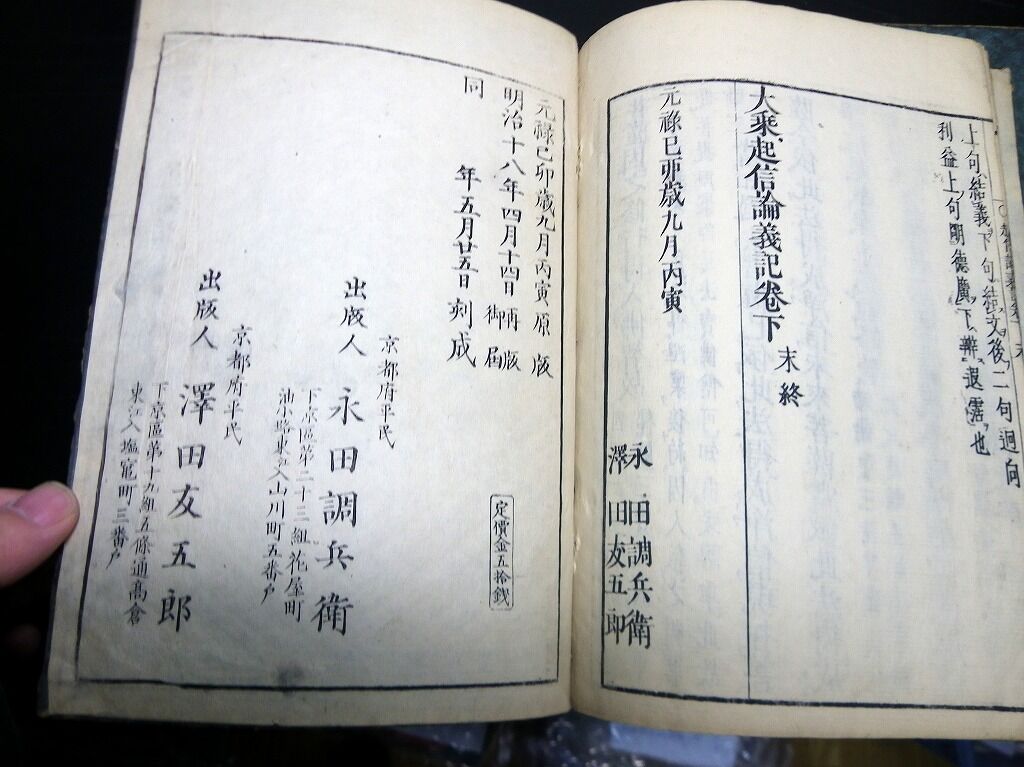 上句結義下句結文後二句迴向
利益上句明德廣下辨遐霑也
大乘起信論義記卷下 末終
元祿己卯歲九月丙寅
永田調兵衛
澤田友五郎
元祿己卯歲九月丙寅原版
明治十八年四月十四日再版御届
同年五月廿五日刻成
定價金五拾錢
京都府平民
出版人 永田調兵衛
下京區第二十三組花屋町
油小路東江入山川町五番戸
京都府平民
出版人 澤田友五郎
下京區第十九組五條通髙倉
東江入塩竈町三番戸